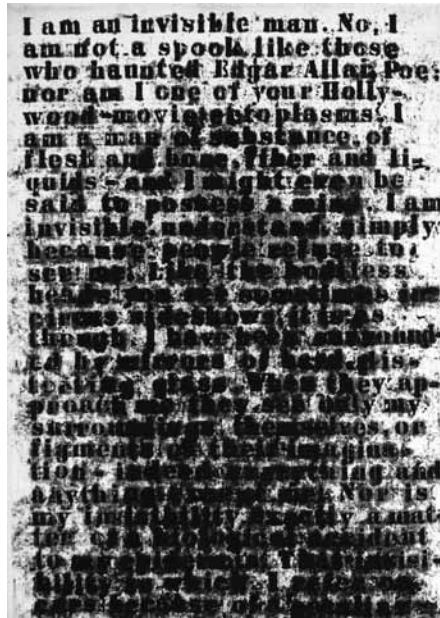 I am an invisible man. No, I
am not a spook like those
who haunted Edgar Allan Poe;
nor am I one of your Holly-
wood-movie ectoplasms. I
am a man of substance, of
flesh and bone, fiber and li-
quids - and I might even be
said to possess a mind. I am
invisible, understand, simply
because people refuse to
see me. Like the bodiless
heads you see sometimes in
circus sideshows, it is as
though I have been surround-
ed by mirrors of hard, dis-
torting glass. When they ap-
proach me they see only my
surroundings, themselves, or
figments of their imagina-
tion - indeed, everything and
anything except me. Nor is
my invisibility exactly a mat-
ter of a biochemical accident
to my